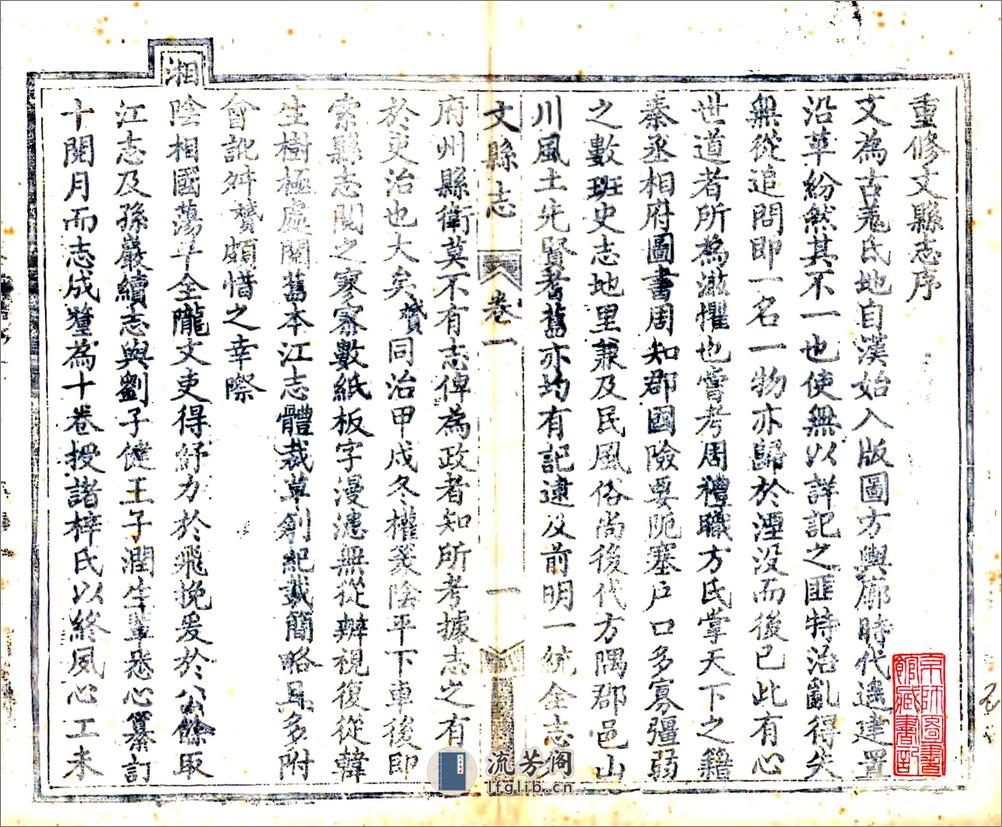 重修文縣志序
文為古氐羌地自漢始入版圖方輿廓時代遞建置
沿革紛然其不一也使無以詳記之匪特治亂得失
無從追問即一名一物亦歸於湮沒而後已此有心
世道者所為滋懼也嘗考周禮職方氏掌天下之籍
秦丞相府圖書周知郡國險要阨塞戶口多寡彊弱
之數班史志地里兼及民風俗尚後代方隅郡邑山
川風土先賢耆舊亦均有記逮及前明一統全志
文縣志 卷一 一
府州縣衛莫不有志俾為政者知所考據志之有
於吏治也大矣贇同治甲戌冬權篆陰平下車後即
索縣志閱之寥寥數紙板字漫漶無從辨視復從韓
生樹極處閱舊本江志體裁草創紀載簡略且多附
會訛舛贇頗惜之幸際
湘陰相國蕩平全隴文吏得紓力於飛挽爰於公餘取
江志及孫嚴續志與劉子健王子潤生輩悉心纂訂
十閱月而志成釐為十卷授諸梓氏以終夙心工未
京師圖書館藏書記
流芳阁
lfglib.cn